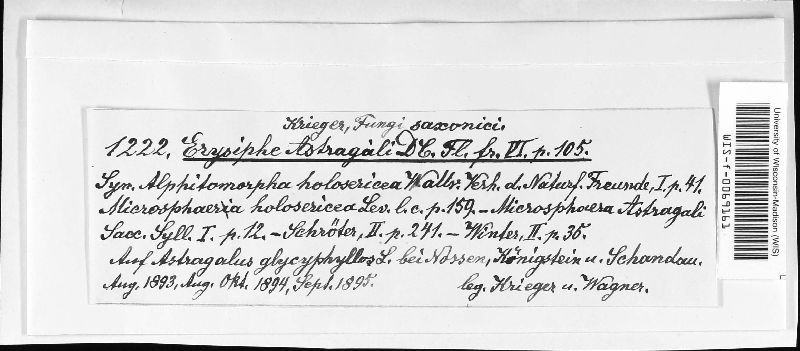 Krieger, Fungi saxonici.
1222. Erysiphe Astragali DC. Fl. fr. VI. p. 105.
Syn. Alphitomorpha holosericea Wallr. Verh. d. Naturf. Freunde, I. p. 41.
Microsphaeria holosericea Lev. l. c. p. 159. – Microsphaera Astragali
Sacc. Syll. I. p. 12. – Schröter, II. p. 241. – Winter, II. p. 35.
Auf Astragalus glycyphyllos L. bei Nossen, Königstein u. Schandau.
Aug. 1893, Aug. Okt. 1894, Sept. 1895. leg. Krieger u. Wagner.
University of Wisconsin-Madison (WIS)
WIS-f-0069161